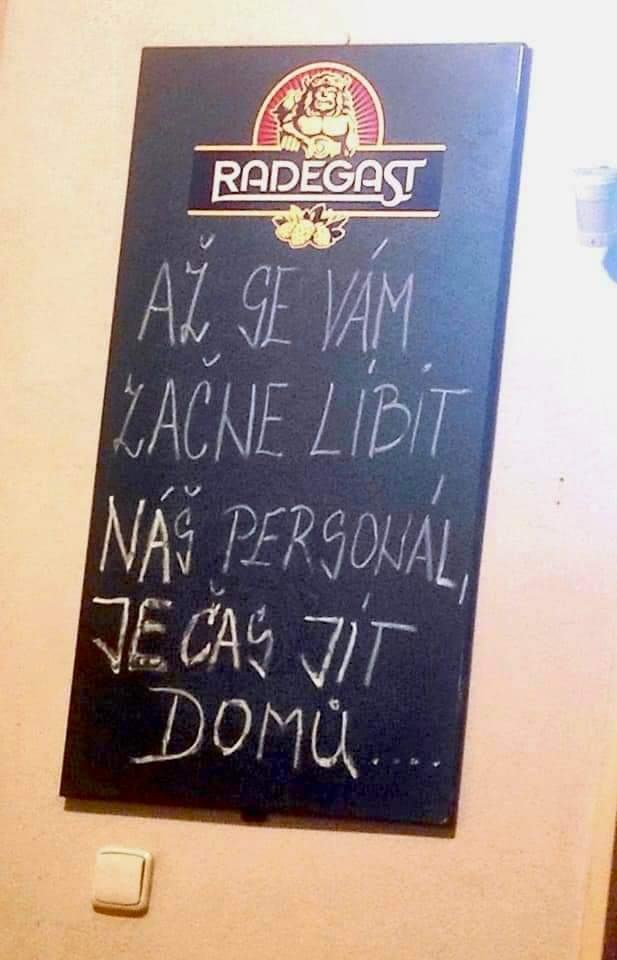 RADEGAST
AŽ SE VÁM
ZAČNE LÍBÍT
NÁŠ PERSONÁL,
JE ČAS JÍT
DOMŮ....